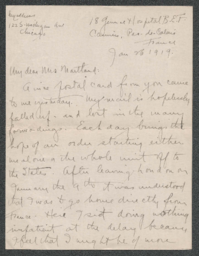 18 General Hospital B.E.F.
Chicago
France
Jan 28 1919.
My dear Mrs Maitland:
A nice postal card from you came
to me yesterday. My mail is hopelessly
balled up and lost in the many
forwardings. Each day brings the
hope of an order starting either
me alone or the whole unit off to
the States. After leaving London on
January the it was understood
that I was to go home directly from
here. Here I rest doing nothing
impatient at the delay because
I might be of more